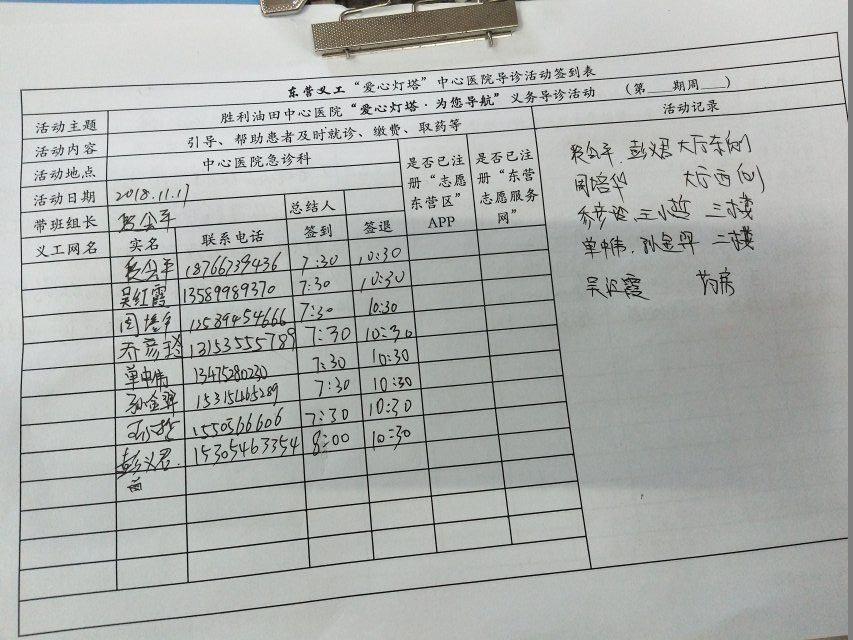 东营义工“爱心灯塔”中心医院导诊活动签到表
活动主题 胜利油田中心医院“爱心灯塔·为您导航”义务导诊活动 （第___期周___）
活动内容 引导、帮助患者及时就诊、缴费、取药等 活动记录
活动地点 中心医院急诊科 是否已注册“志愿东营区”APP 是否已注册“东营志愿服务网”
活动日期 2018.11.17
带班组长 公平 总结人
义工网名 实名 联系电话 签到 签退
公平 18766739436 7:30 10:30
吴红霞 13589989370 7:30 10:30
周培华 15589454666 7:30 10:30
乔彦玲 13153555789 7:30 10:30
单中伟 13475280230 7:30 10:30
孙金翠 15315465289 7:30 10:30
王小哲 1550566606 7:30 10:30
彭义君 15305463354 8:00 10:30
公平、彭义君 大厅东侧
周培华 大厅西侧
乔彦玲、王小哲 三楼
单中伟、孙金翠 二楼
吴红霞 药房